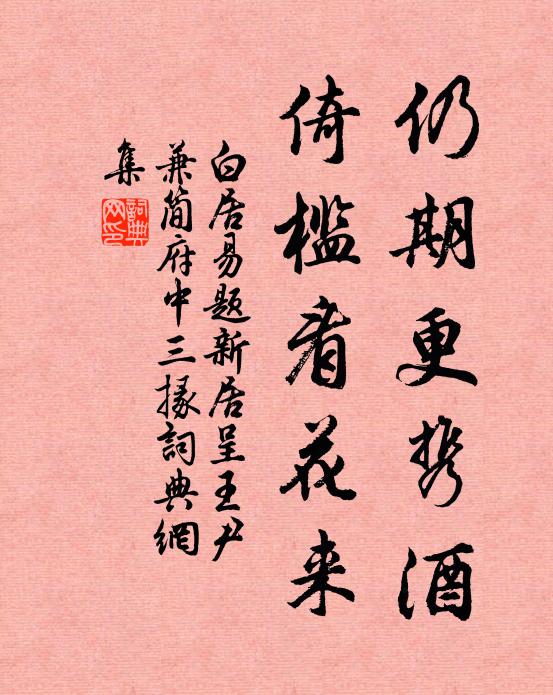 仍期更携酒
倚槛看花来
白居易题新居呈王尹
兼简府中三掾詞典網
集
詞典網印